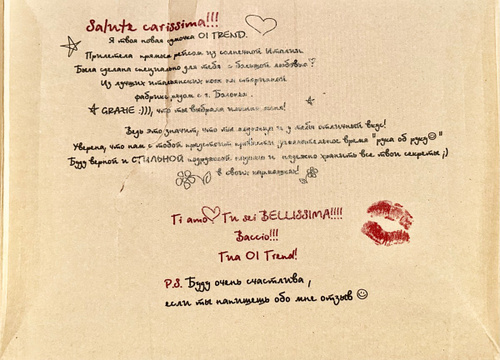 Salute carissima!!!
Я твоя новая сумочка O1 TREND.
Прилетела прямым рейсом из солнечной Италии.
Была сделана специально для тебя с большой любовью
Из лучших итальянских кож на старинной
фабрике рядом с г. Болонья.
GRAZIE :))), что ты выбрала именно меня!
Ведь это значит, что ты модница и у тебя отличный вкус!
Уверена, что нам с тобой предстоит провести замечательное время "рука об руку☺"
Буду верной и СТИЛЬНОЙ подружкой, слушаю и надежно хранить все твои секреты ;)
в своих кармашках!
Ti amo♡ Tu sei BELLISSIMA!!!!
Baccio!!!
Tua O1 Trend!
P.S. Буду очень счастлива,
если ты напишешь обо мне отзыв ☺